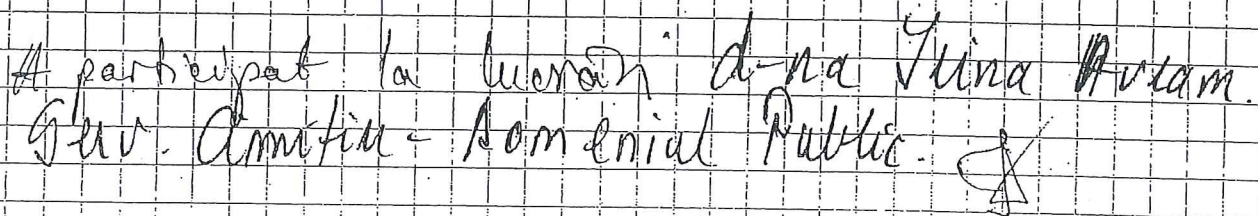 A participat la lucrări d-na Irina Avram.
Serv. Domeniul Public.